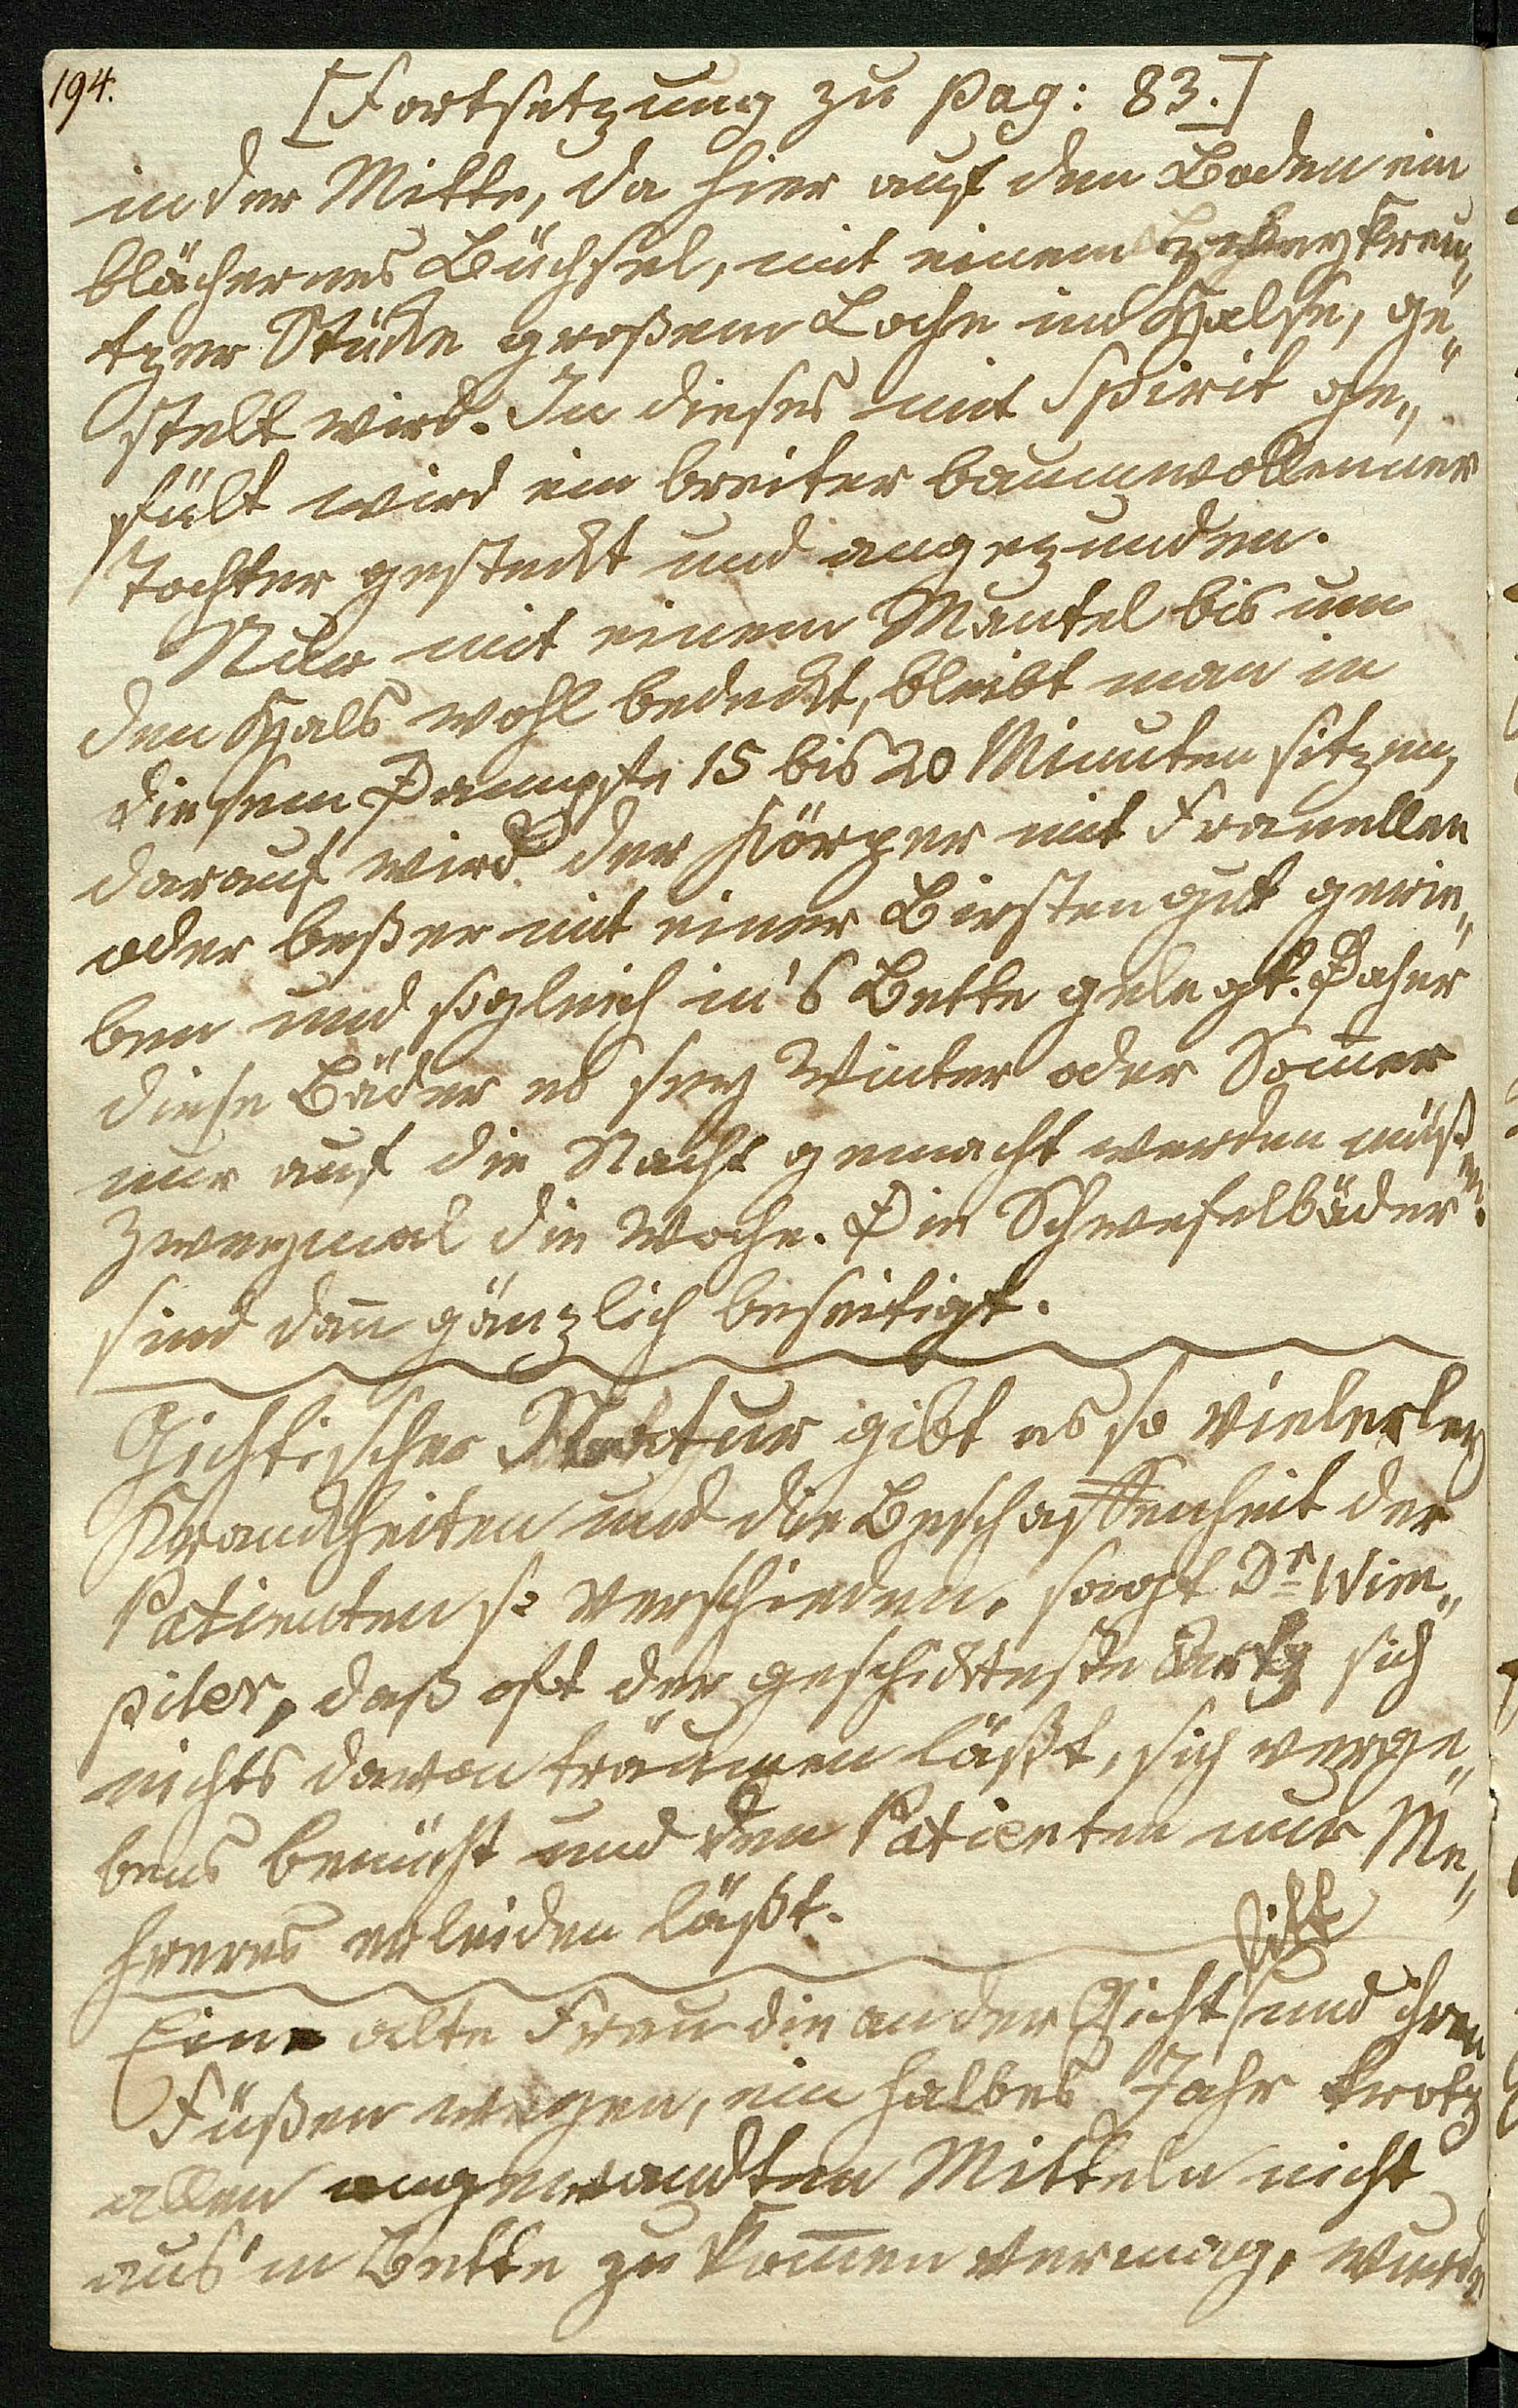 194.
[Fortsetzung zu pag: 83.]
in der Mitte, da hier auf den Boden ein
blächernes Büchsel, mit einem kreu„
tzer Stücke großem Loche im Halse, ge„
stelt wird. In dieses mit Spirit ge„
fült wird ein breiter baumwollenner
Tochter gesteckt und angezunden.
Nun mit einem Mantel bis um
den Hals wohl bedeckt, bleibt man in
diesem Dampfe 15 bis 20 Minuten sitzen,
darauf wird der Körper mit Franellen
oder beßer mit einer Birsten gut gerie„
ben und sogleich in's Bette gelegt. Daher
diese Bäder es sey Winter oder Som̄er
nur auf die Nacht gemacht werden müß
en.
Zweymal die Woche. Die Schwefelbäder
sind dan̄ gänzlich beseitigt.
Gichtischer Natur gibt es so vielerley
Krankheiten und die Beschaffenheit der
Patienten so verschieden, sagt Dr Wim„
piler, daß oft der geschickteste Artz sich
nichts davon träumen läßt, sich verge„
bens bemüht und den Patienten nur Me„
hreres erleiden läßt.
litt
Eine alte Frau die an der Gicht und ihren
Füßen wegen, ein halbes Jahr trotz
allen angewandten Mitteln nicht
aus'm Bette zu kom̄en vermag, wurde